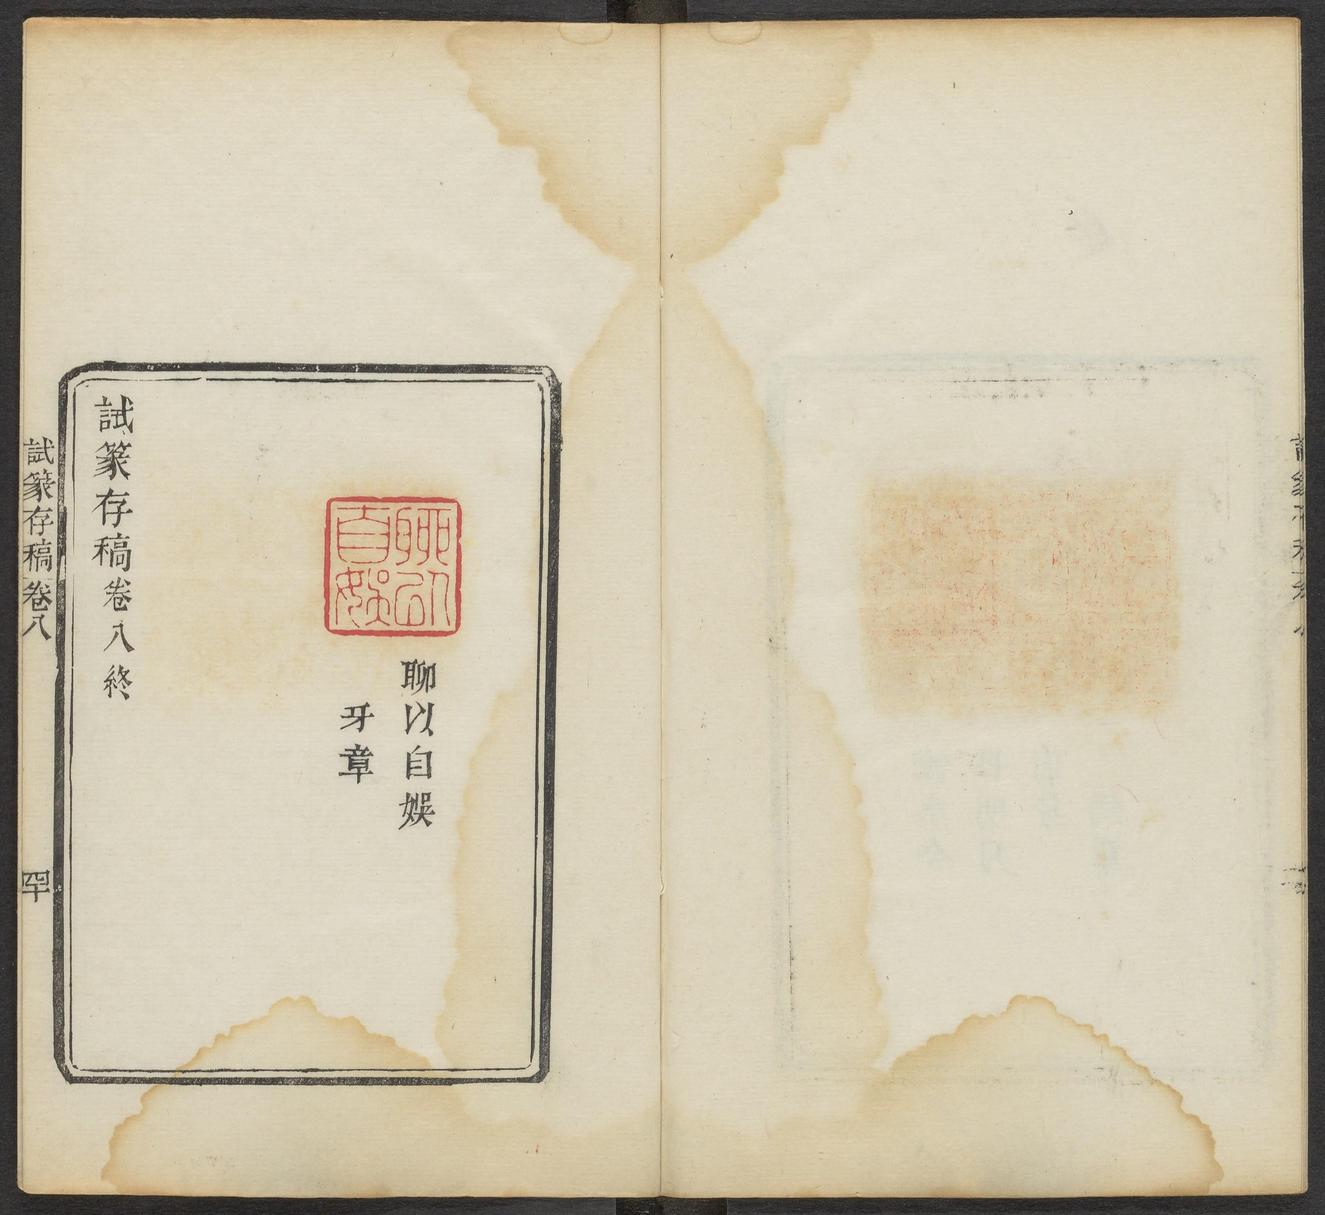 聊以自娛
聊以自娛
牙章
試篆存稿卷八終
試篆存稿卷八
四十